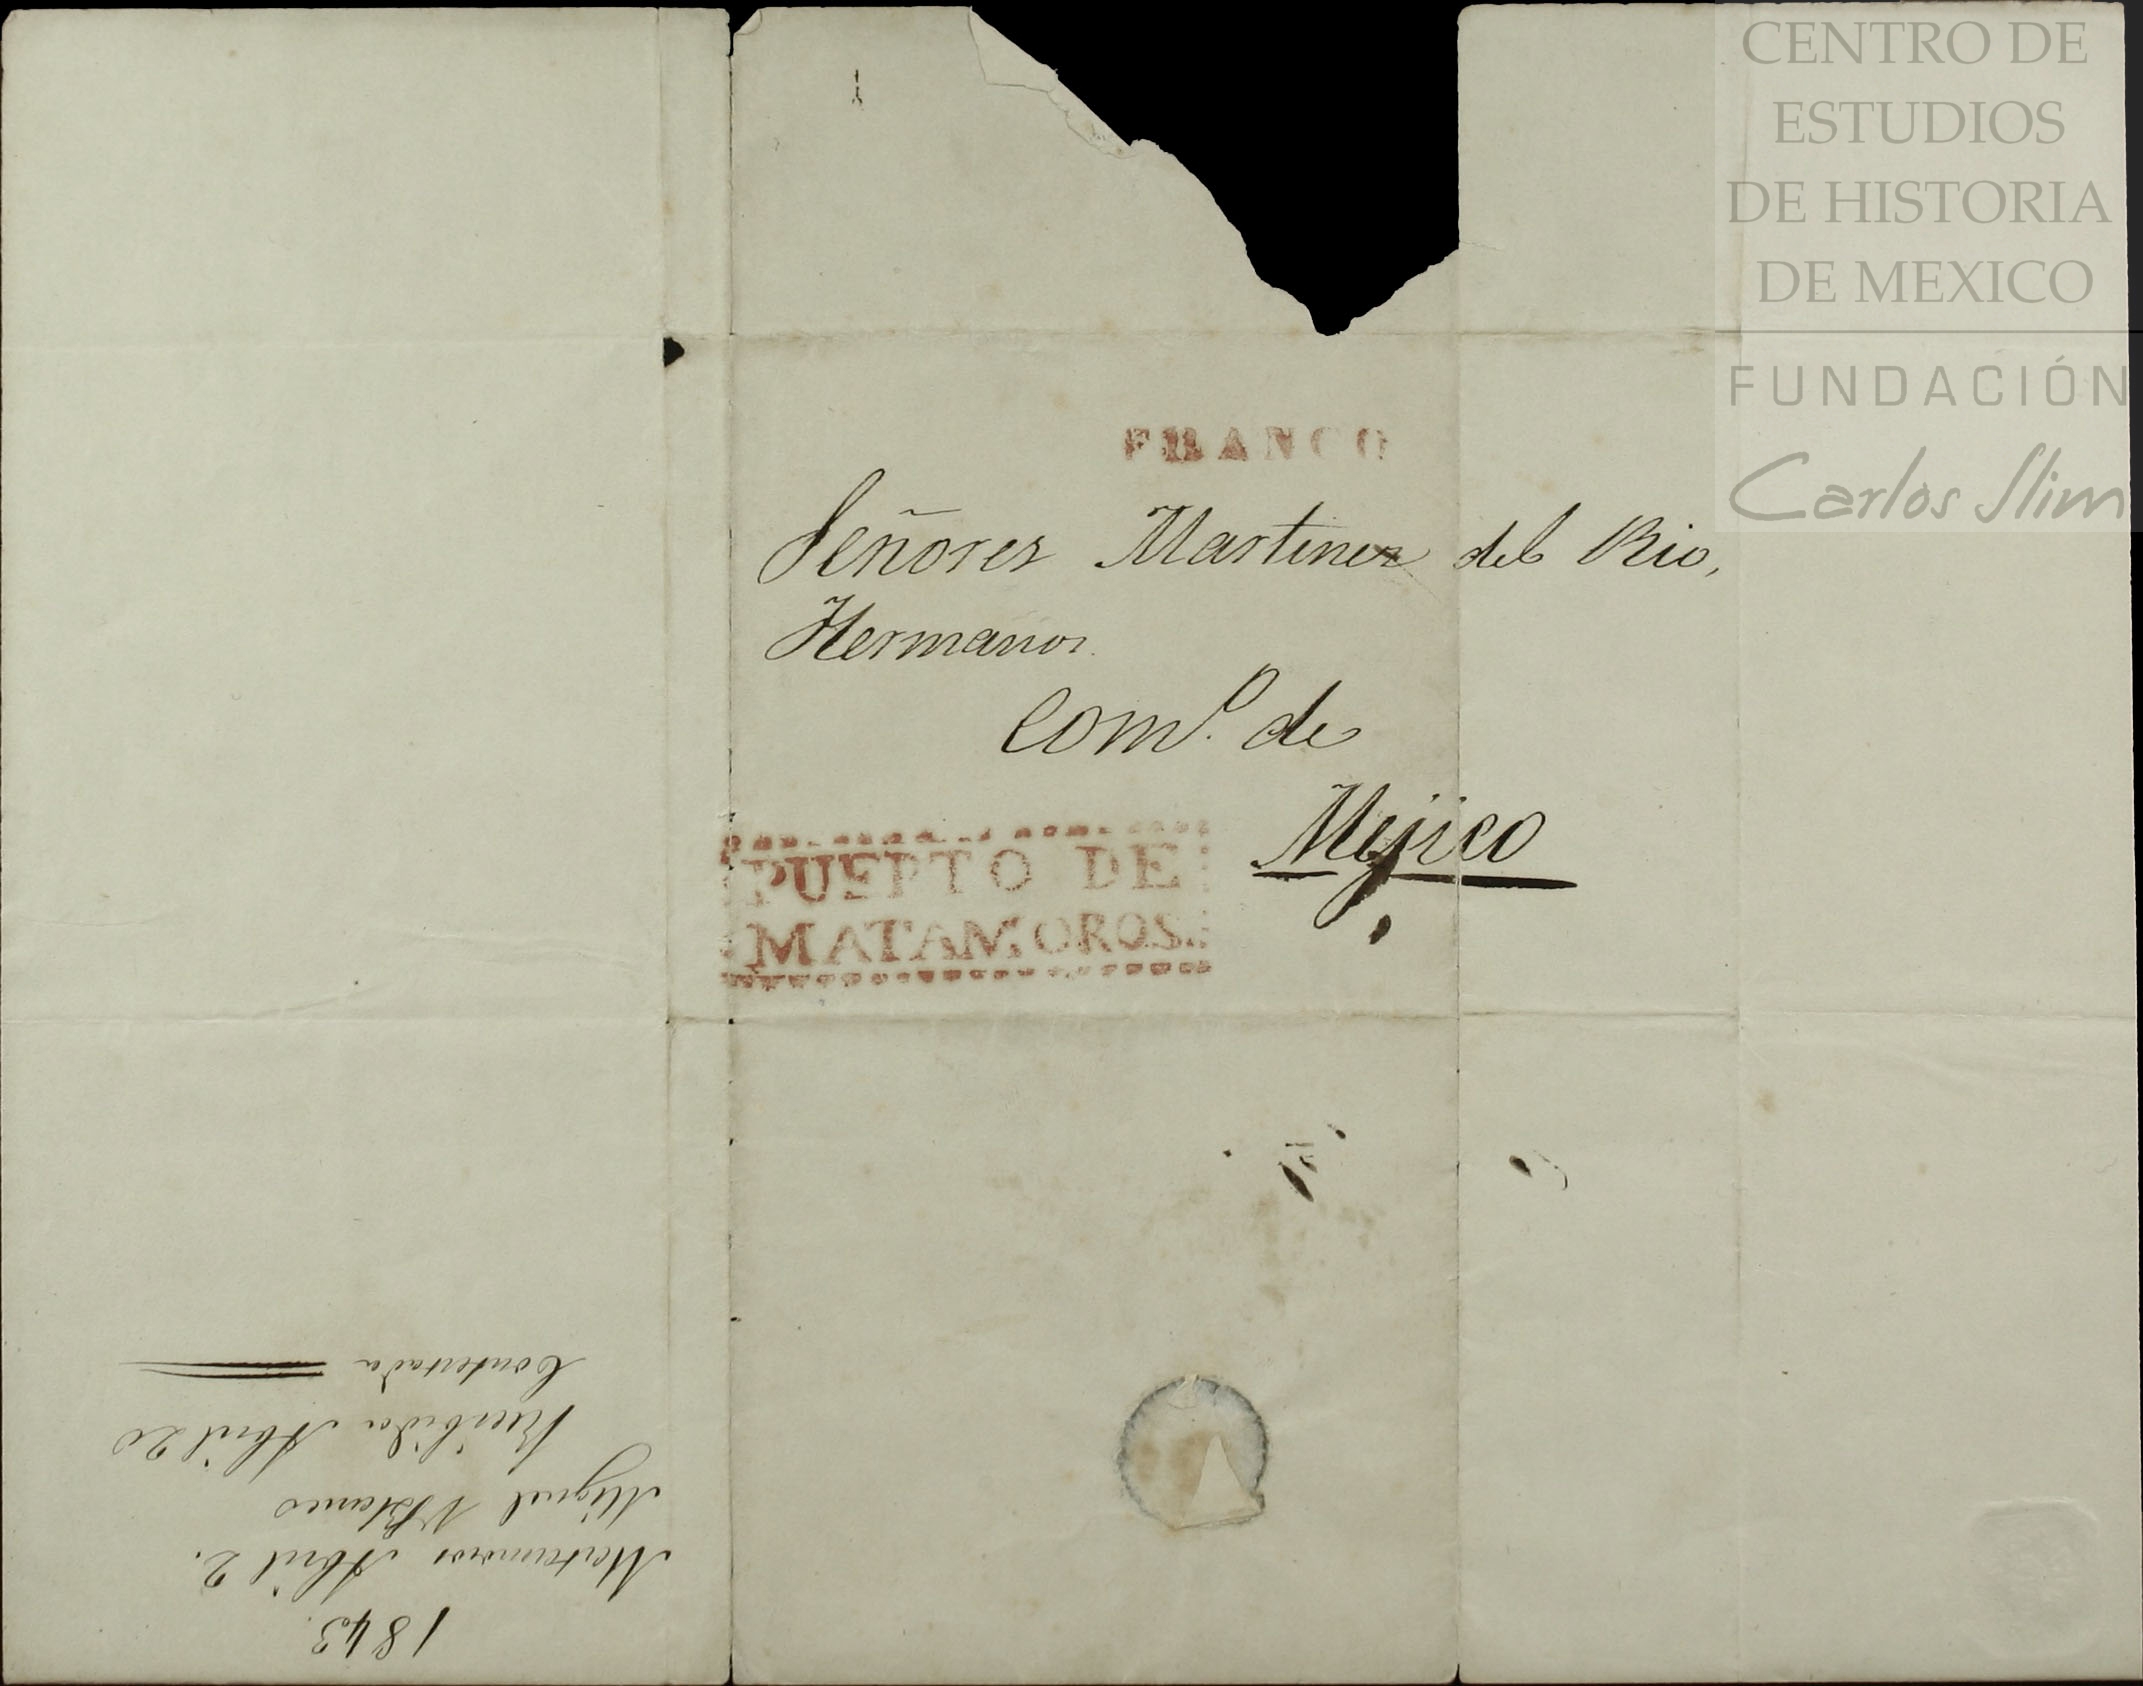 FRANCO
Señores Martinez del Rio,
Hermanos.
Com.º de
Mejico
PUERTO DE
MATAMOROS.
1843.
Matamoros Abril 2.
Miguel Blanco
Recibida Abril 20
Contestada
CENTRO DE
ESTUDIOS
DE HISTORIA
DE MEXICO
FUNDACIÓN
Carlos Slim